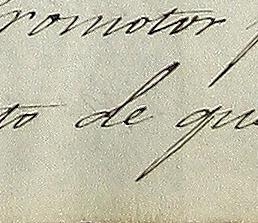 Promotor p
to de que